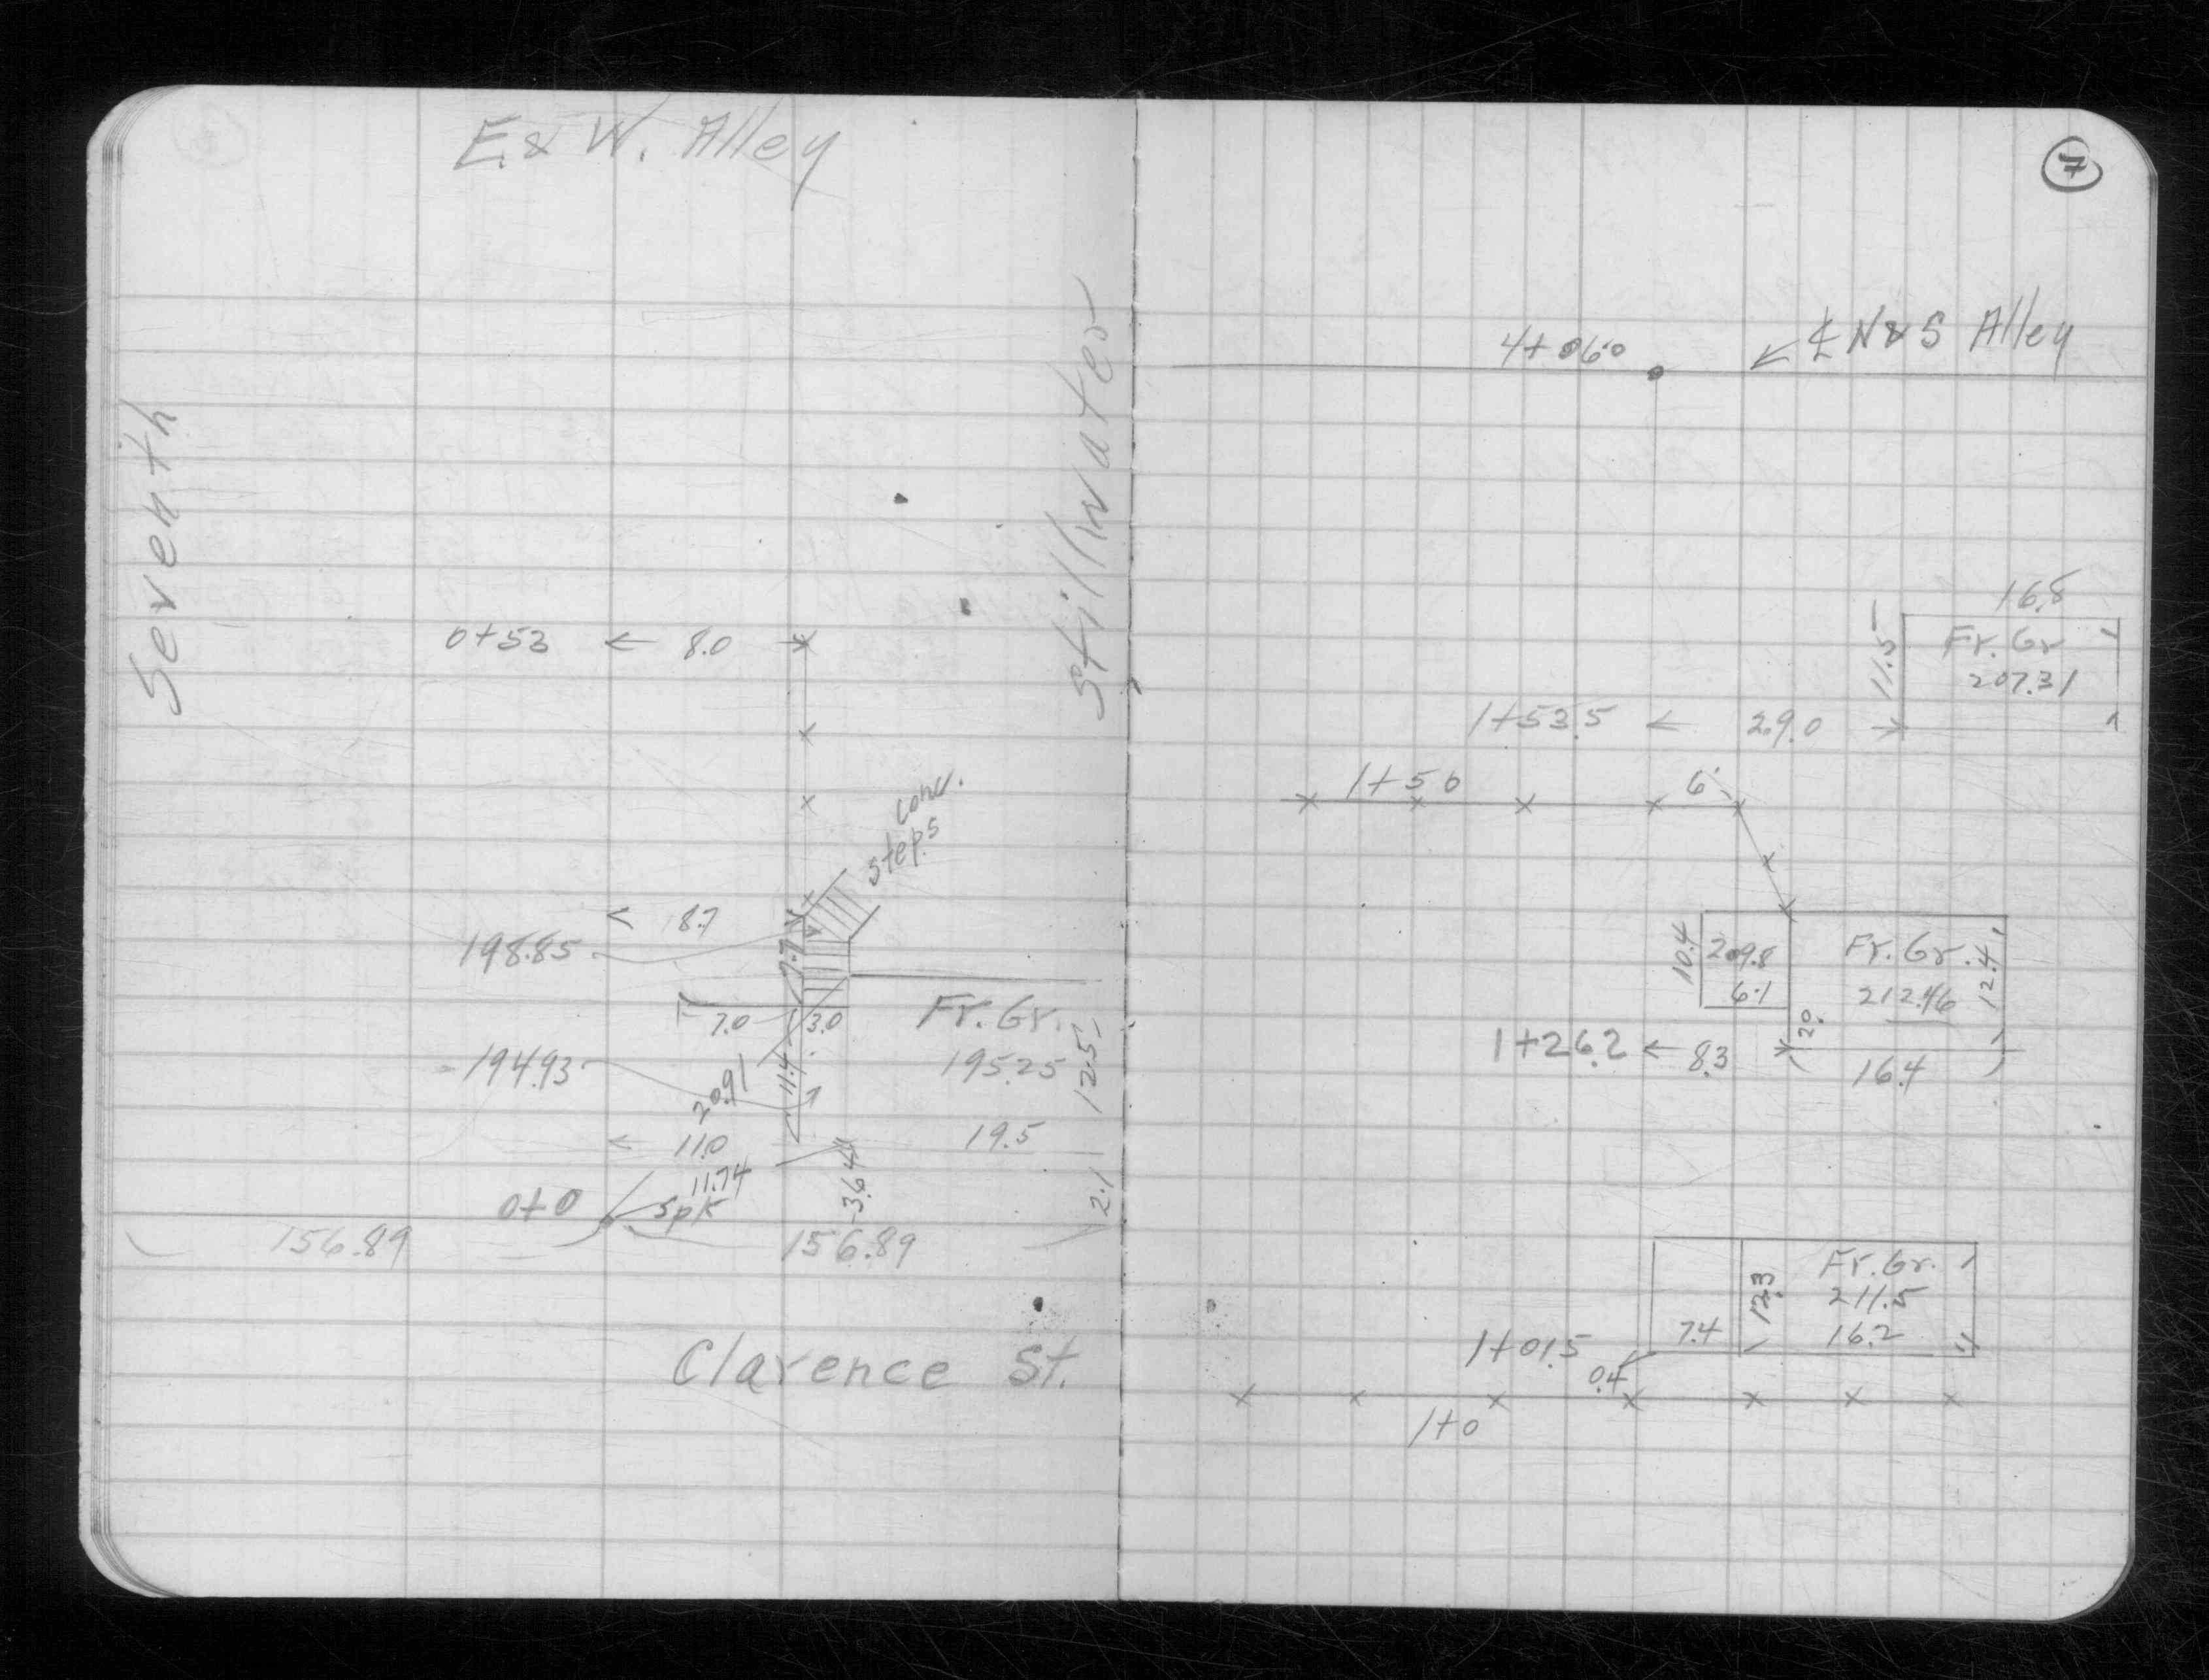 E. & W. Alley
Seventh
Stillwater
0+53 ← 8.0
conc.
steps
← 8.7
198.85
7.7
7.0
3.0
Fr. Gr.
194.93
195.25
12.5
20.91
11.4
← 11.0
19.5
11.74
3.64
2.1
0+0
Spk
156.89
156.89
Clarence St.
7
4+06.0
← ℄ N & S Alley
16.8
11.5
Fr. Gr
207.31
1+53.5 ← 29.0
1+50
6'
10.4
209.8
6.1
Fr. Gr.
212.46
12.4
2.0
1+26.2 ← 8.3
16.4
12.3
Fr. Gr.
211.5
7.4
16.2
1+01.5
0.4
1+0